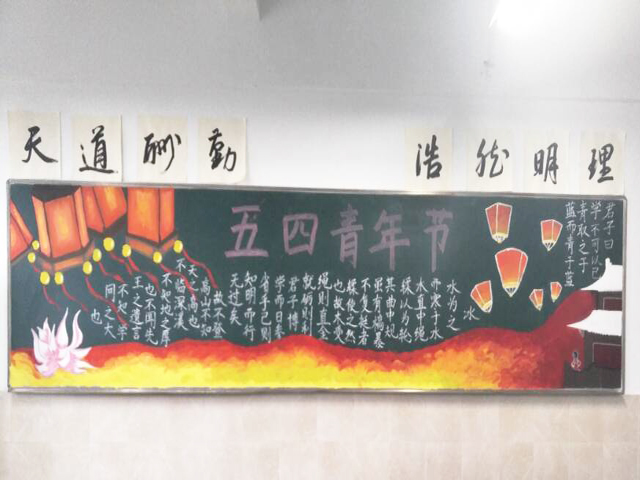 天道酬勤
浩然明理
五四青年节
君子曰
学不可以已
青取之于
蓝而青于蓝
冰
水为之
而寒于水
木直中绳
輮以为轮
其曲中规
虽有槁暴
不复挺者
輮使之然
也故木受
绳则直金
就砺则利
君子博
学而日参
省乎己则
知明而行
无过矣
故不登
高山不知
天之高也
不临深溪
不知地之厚
也不闻先
王之遗言
不知学
问之大
也